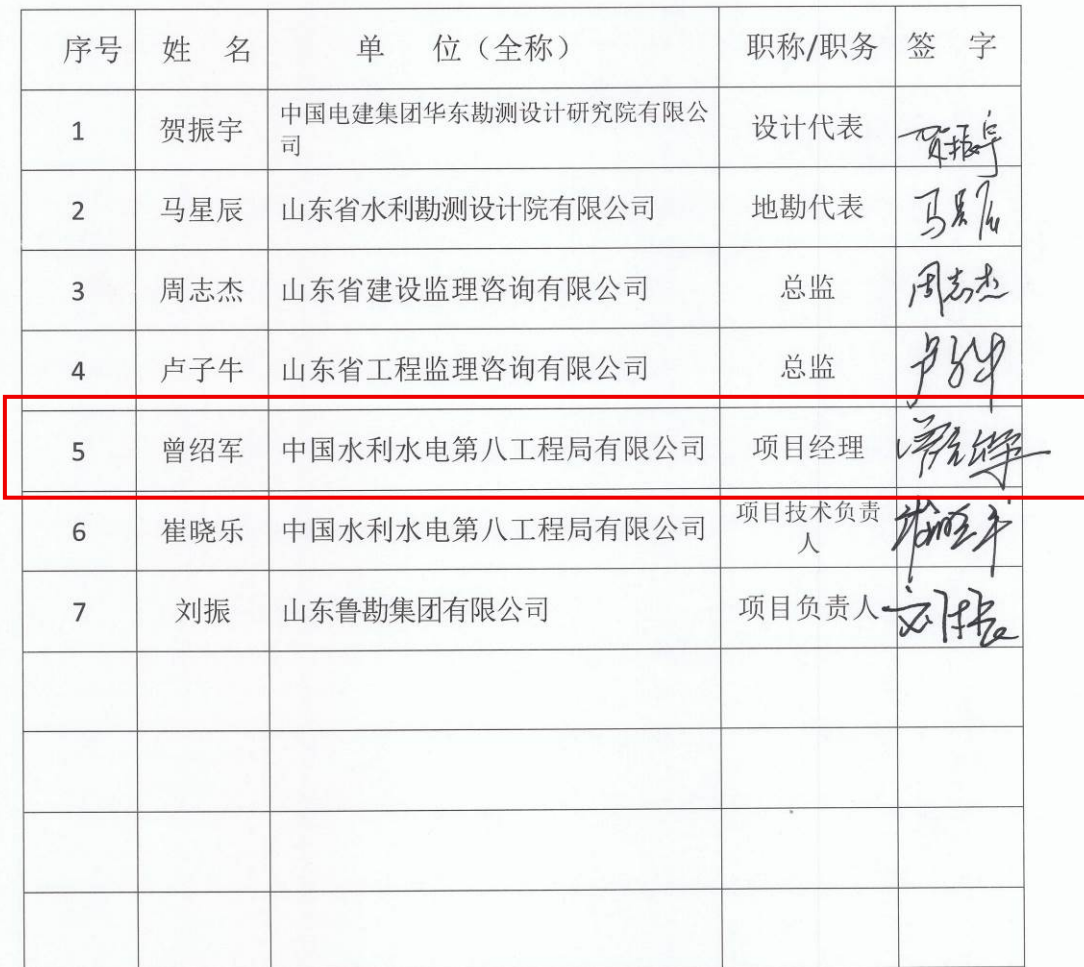 序号 姓 名 单 位（全称） 职称/职务 签 字
1 贺振宇 中国电建集团华东勘测设计研究院有限公司 设计代表 贺振宇
2 马星辰 山东省水利勘测设计院有限公司 地勘代表 马星辰
3 周志杰 山东省建设监理咨询有限公司 总监 周志杰
4 卢子牛 山东省工程监理咨询有限公司 总监 卢子牛
5 曾绍军 中国水利水电第八工程局有限公司 项目经理
6 崔晓乐 中国水利水电第八工程局有限公司 项目技术负责人
7 刘振 山东鲁勘集团有限公司 项目负责人 刘振